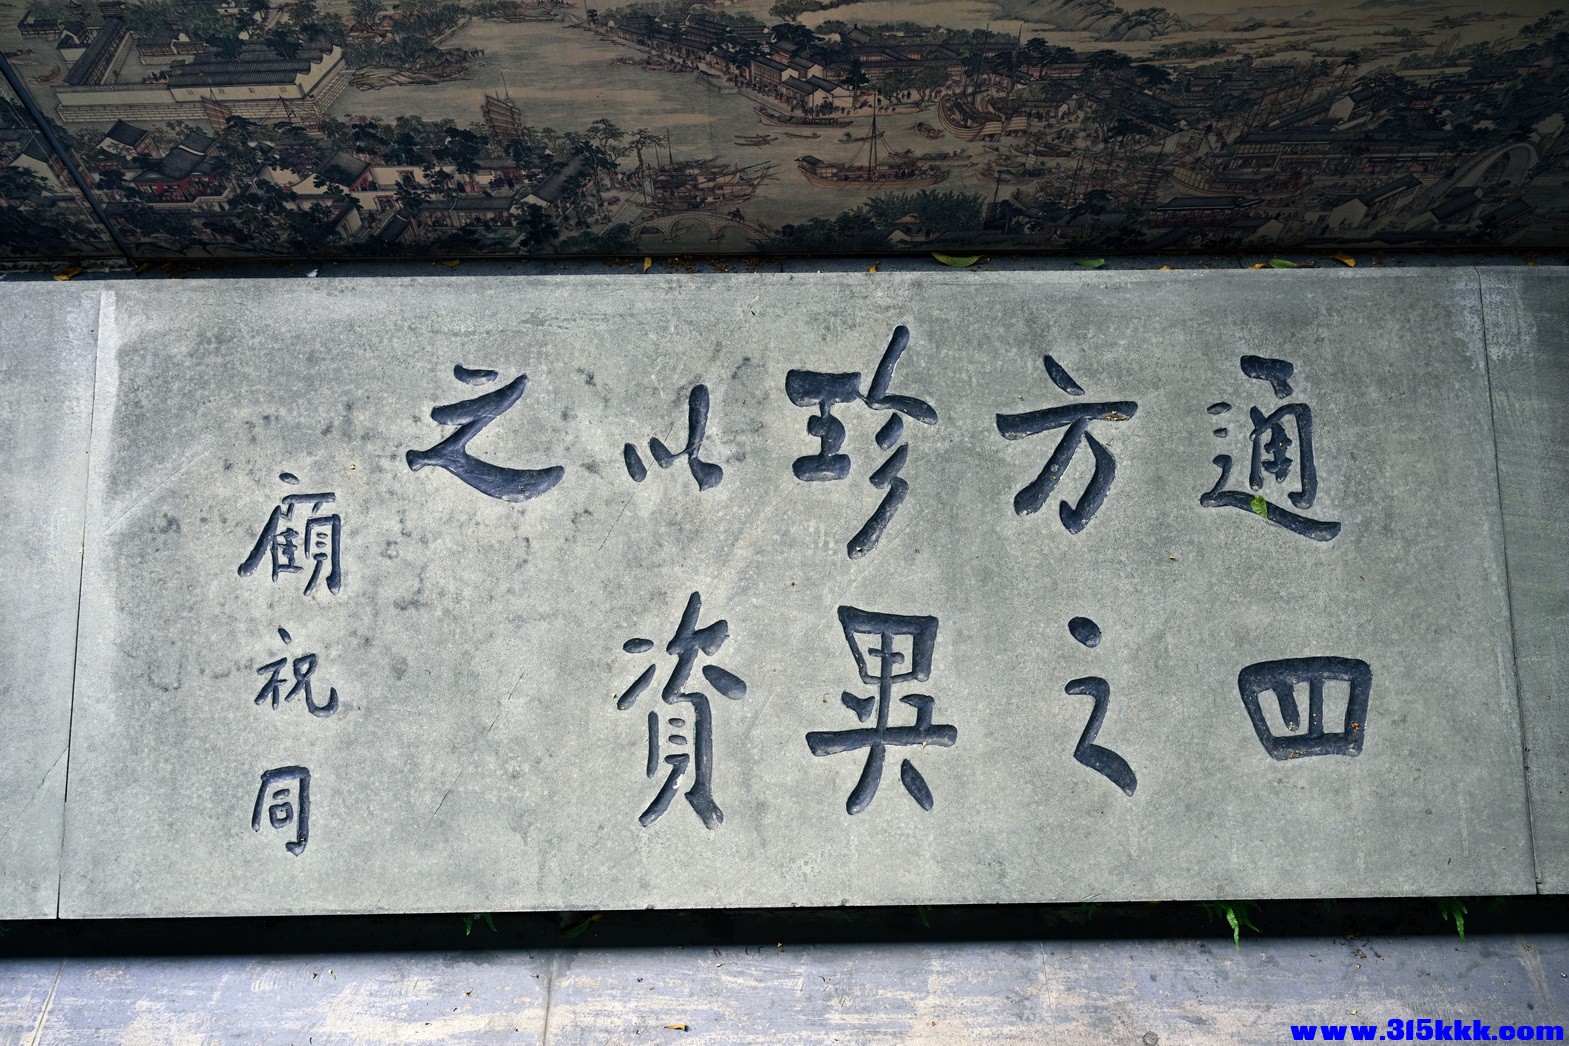 通四
方之
珍異
以資
之
顧祝同
www.315kkk.com